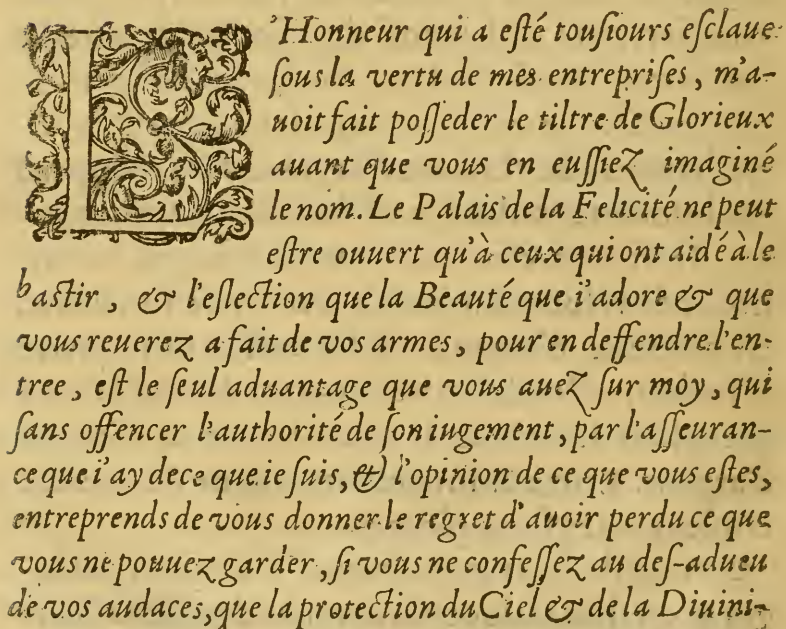 L'Honneur qui a eſté touſiours eſclaue
ſous la vertu de mes entrepriſes, m'a-
uoit fait poſſeder le tiltre de Glorieux
auant que vous en euſſiez imaginé
le nom. Le Palais de la Felicité ne peut
eſtre ouuert qu'à ceux qui ont aidé à le
baſtir, & l'eſlection que la Beauté que i'adore & que
vous reuerez a fait de vos armes, pour en deffendre l'en-
tree, eſt le ſeul aduantage que vous auez ſur moy, qui
ſans offencer l'authorité de ſon iugement, par l'aſſeuran-
ce que i'ay de ce que ie ſuis, & l'opinion de ce que vous eſtes,
entreprends de vous donner le regret d'auoir perdu ce que
vous ne pouuez garder, ſi vous ne confeſſez au deſ-adueu
de vos audaces, que la protection du Ciel & de la Diuini-